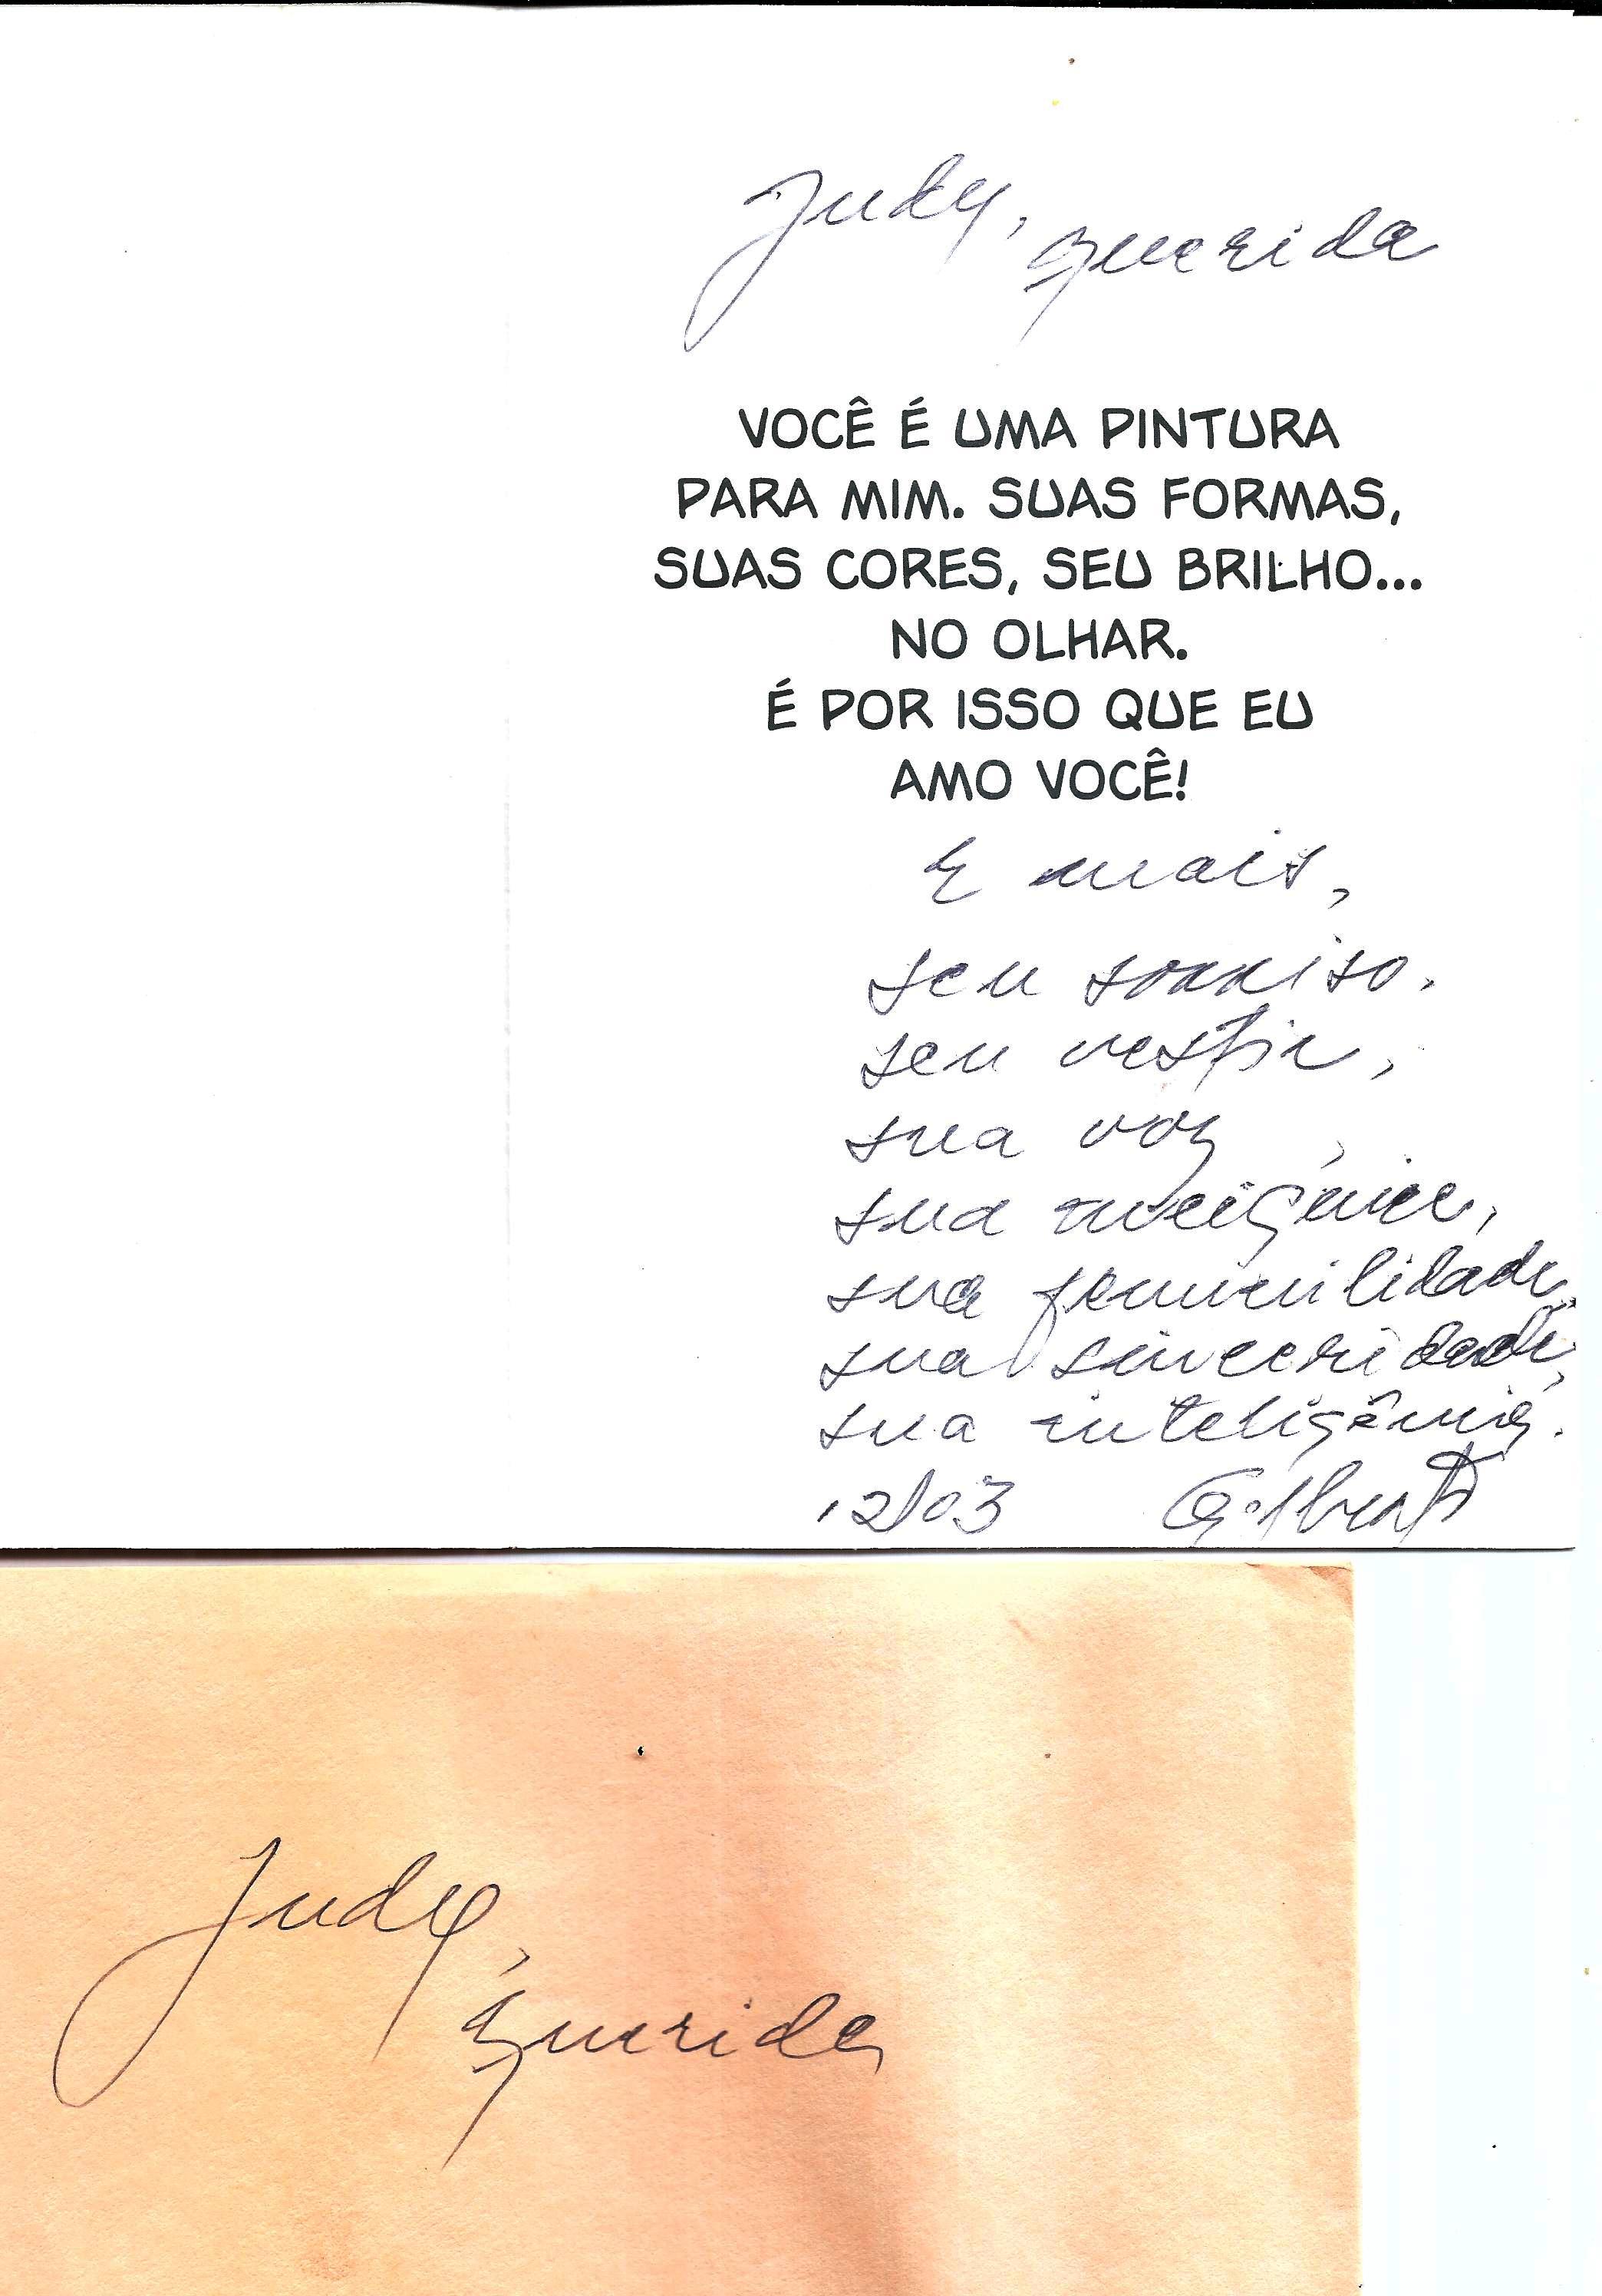 Judy,
querida
VOCÊ É UMA PINTURA
PARA MIM. SUAS FORMAS,
SUAS CORES, SEU BRILHO...
NO OLHAR.
É POR ISSO QUE EU
AMO VOCÊ!
E mais,
seu sorriso,
seu vestir,
sua voz,
sua meiguice,
sua feminilidade,
sua sinceridade,
sua inteligência.
12/03 Gilberto
Judy,
querida